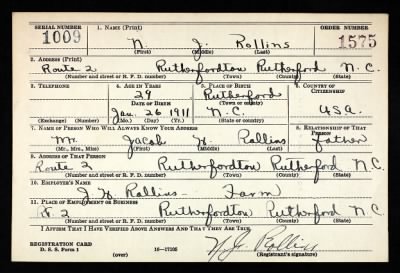 SERIAL NUMBER 1. NAME (Print) ORDER NUMBER
1009 N. J. Rollins 1575
(First) (Middle) (Last)
2. ADDRESS (Print)
Route 2 Rutherfordton Rutherford N.C.
(Number and street or R. F. D. number) (Town) (County) (State)
3. TELEPHONE 4. AGE IN YEARS 5. PLACE OF BIRTH 6. COUNTRY OF CITIZENSHIP
29 Rutherford
DATE OF BIRTH (Town or county)
Jan. 26 1911 N.C. USA.
(Exchange) (Number) (Mo.) (Day) (Yr.) (State or country)
7. NAME OF PERSON WHO WILL ALWAYS KNOW YOUR ADDRESS 8. RELATIONSHIP OF THAT PERSON
Mr. Jacob W. Rollins Father
(Mr., Mrs., Miss) (First) (Middle) (Last)
9. ADDRESS OF THAT PERSON
Route 2 Rutherfordton Rutherford N.C.
(Number and street or R. F. D. number) (Town) (County) (State)
10. EMPLOYER'S NAME
J. W. Rollins - Farm
11. PLACE OF EMPLOYMENT OR BUSINESS
R. 2 Rutherfordton Rutherford N.C.
(Number and street or R. F. D. number) (Town) (County) (State)
I AFFIRM THAT I HAVE VERIFIED ABOVE ANSWERS AND THAT THEY ARE TRUE.
REGISTRATION CARD
D. S. S. Form 1 (over) 16-17105 N. J. Rollins
(Registrant's signature)